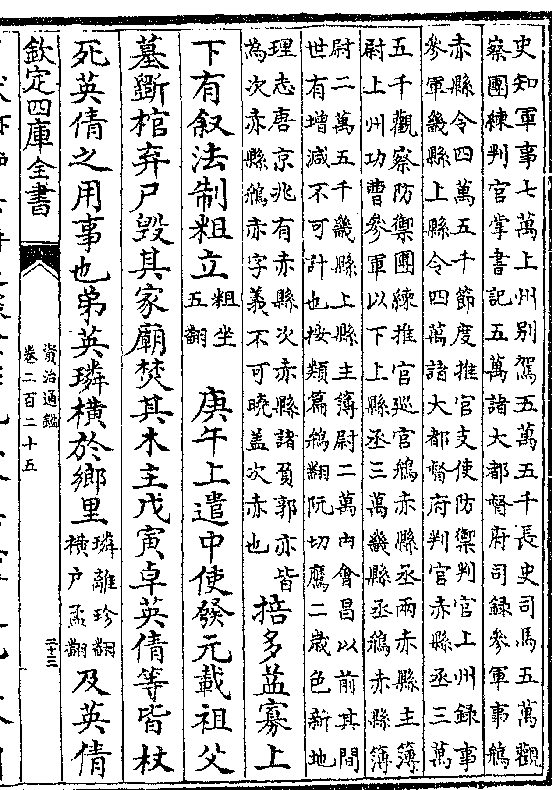 史知軍事七萬上州别駕五萬五千長史司馬五萬觀
察團練判官掌書記五萬諸大都督府司録參軍事鴘
赤縣令四萬五千節度推官支使防禦判官上州録事
參軍畿縣上縣令四萬諸大都督府判官赤縣丞三萬
五千觀察防禦團練推官巡官鴘赤縣丞兩赤縣主簿
尉上州功曹參軍以下上縣丞三萬畿縣丞鴘赤縣簿
尉二萬五千畿縣上縣主簿尉二萬内會昌以前其間
世有增減不可計也按類篇鴘翻阮切鷹二歲色新地
理志唐京兆有赤縣次赤縣諸負郭亦皆
為次赤縣鴘赤字義不可曉盖次赤也
掊多益寡上
下有叙法制粗立
粗坐
五翻
庚午上遣中使發元載祖父
墓斵棺弃尸毁其家廟焚其木主戊寅卓英倩等皆杖
死英倩之用事也弟英璘横於鄉里
璘離珍翻
横户孟翻
及英倩
欽定四庫全書
資治通鑑
卷二百二十五
二十三